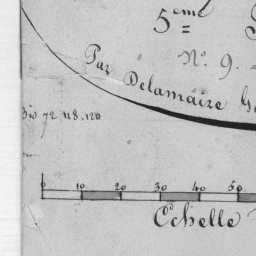 5.eme
N.o 9.
Par Delamaire
72 118.120
0 10 20 30 40 50
Echelle